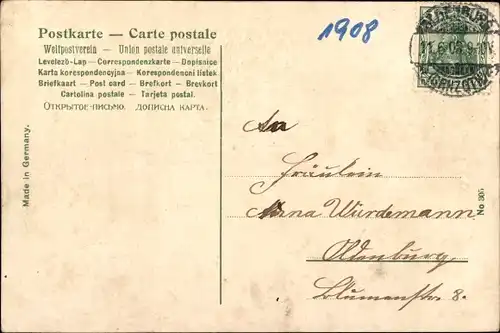 Postkarte — Carte postale
Weltpostverein — Union postale universelle
Levelezö-Lap — Correspondenzkarte — Dopisnice
Karta korespondencyjna — Korespondenční lístek
Briefkaart — Post card — Brefkort — Brevkort
Cartolina postale — Tarjeta postal.
Открытое-письмо. Дописна карта.
1908
11.6.08.9-10V.
Made in Germany.
An
Fräulein
Anna Würdemann
Oldenburg
Blumenstr. 8.
No 305